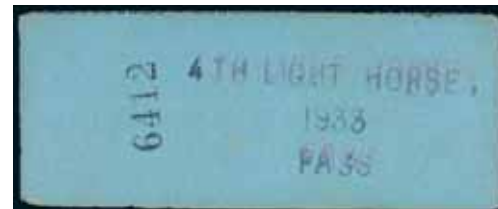 6412
4TH LIGHT HORSE,
1933
PASS